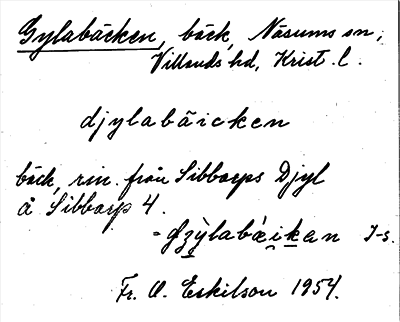 Gylabäcken, bäck, Näsums sn,
Villands hd, Krist. l.
djylabäicken
bäck, rin. från Sibbarps Djyl
å Sibbarp 4.
J-s.
Fr. O. Eskilson 1954.